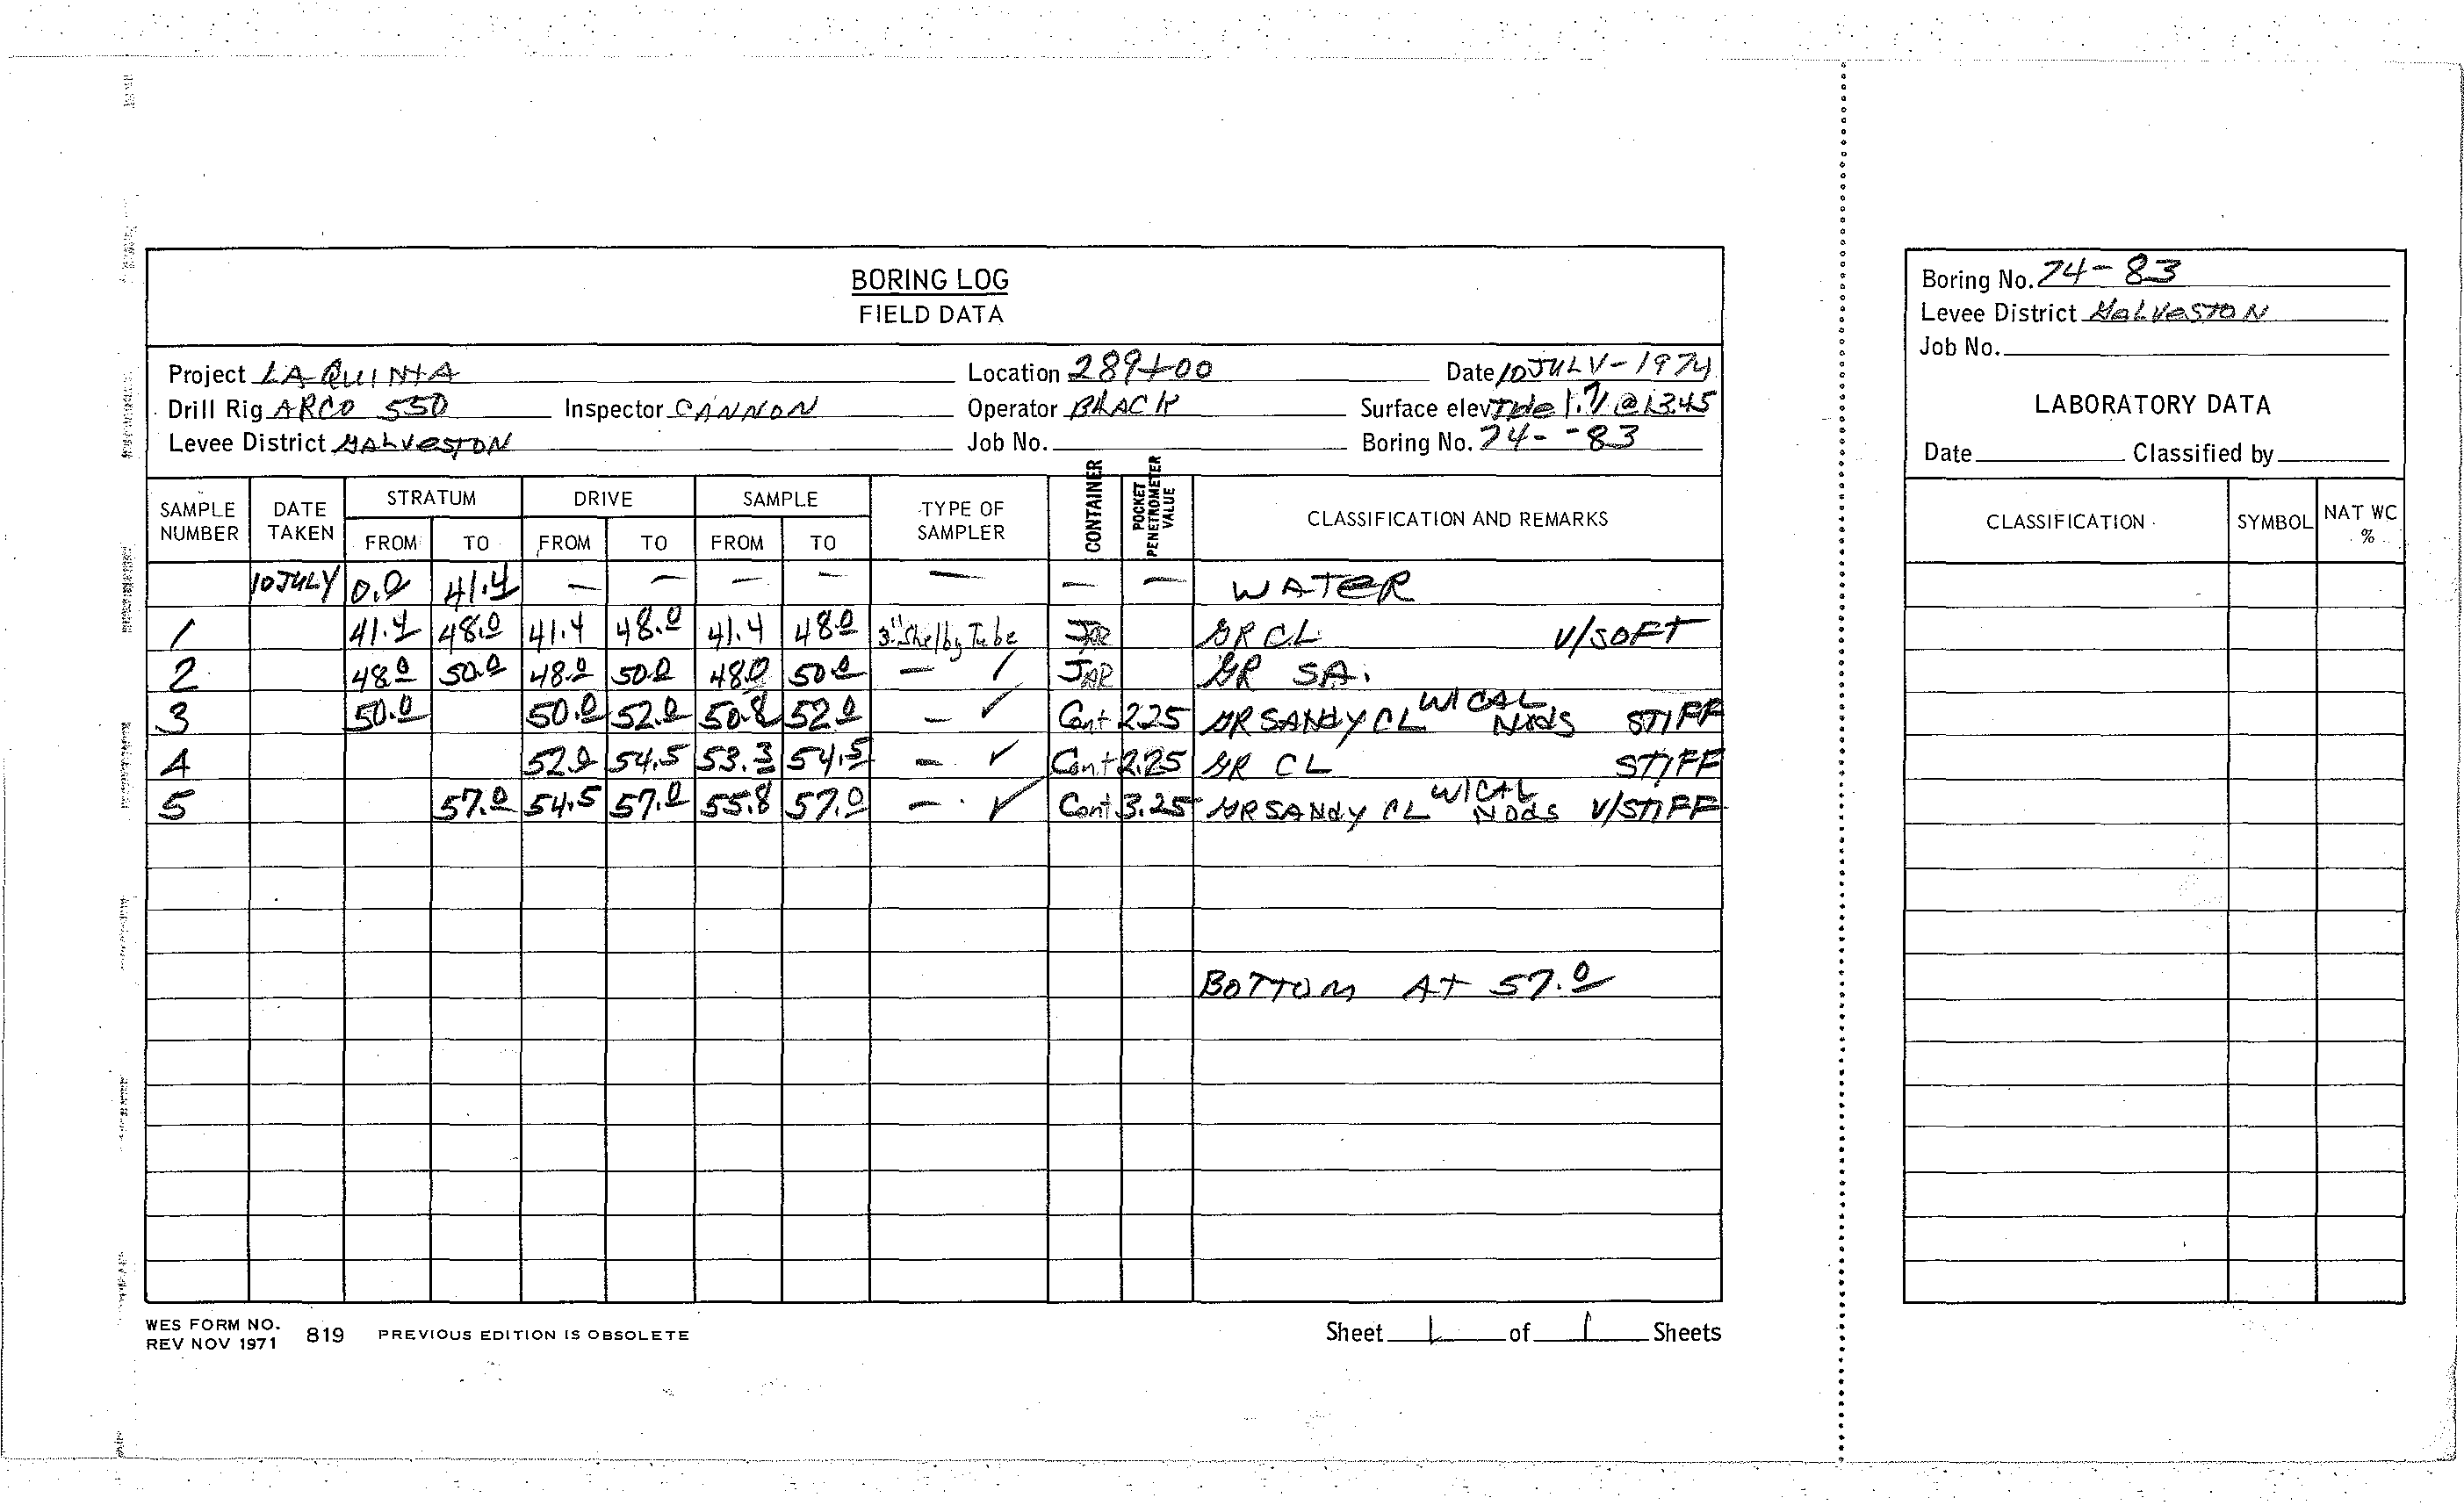 BORING LOG
FIELD DATA
Project LA QUINTA Location 289+00 Date 10 JULY-1974
Drill Rig ARCO 550 Inspector CANNON Operator BLACK Surface elev Tide 1.7 @ 1345
Levee District GALVESTON Job No. Boring No. 74--83
SAMPLE NUMBER DATE TAKEN STRATUM FROM TO DRIVE FROM TO SAMPLE FROM TO TYPE OF SAMPLER CONTAINER POCKET PENETROMETER VALUE CLASSIFICATION AND REMARKS
10 JULY 0.0 41.4 — — — — — — — WATER
1 41.4 48.0 41.4 48.0 41.4 48.0 3" Shelby Tube JAR GR CL V/SOFT
2 48.0 50.0 48.0 50.0 48.0 50.0 — ✓ JAR GR SA.
3 50.0 50.0 52.0 50.8 52.0 — ✓ Cont 2.25 GR SANdY CL W/CAL NOdS STIFF
4 52.0 54.5 53.3 54.5 — ✓ Cont 2.25 GR CL STIFF
5 57.0 54.5 57.0 55.8 57.0 — ✓ Cont 3.25 GR SANdY CL W/CAL NOdS V/STIFF
BOTTOM AT 57.0
WES FORM NO. 819 PREVIOUS EDITION IS OBSOLETE
REV NOV 1971
Sheet 1 of 1 Sheets
Boring No. 74-83
Levee District GALVESTON
Job No.
LABORATORY DATA
Date Classified by
CLASSIFICATION SYMBOL NAT WC %